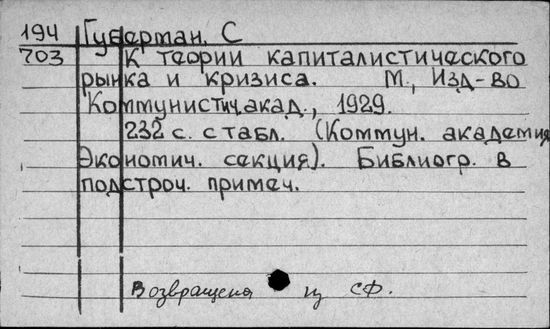 194 Губерман, С
703 К теории капиталистического
рынка и кризиса. М., Изд-во
Коммунистич. акад., 1929.
232 с. с табл. (Коммун. академия
Экономич. секция). Библиогр. в
подстроч. примеч.
Возвращена из СФ.